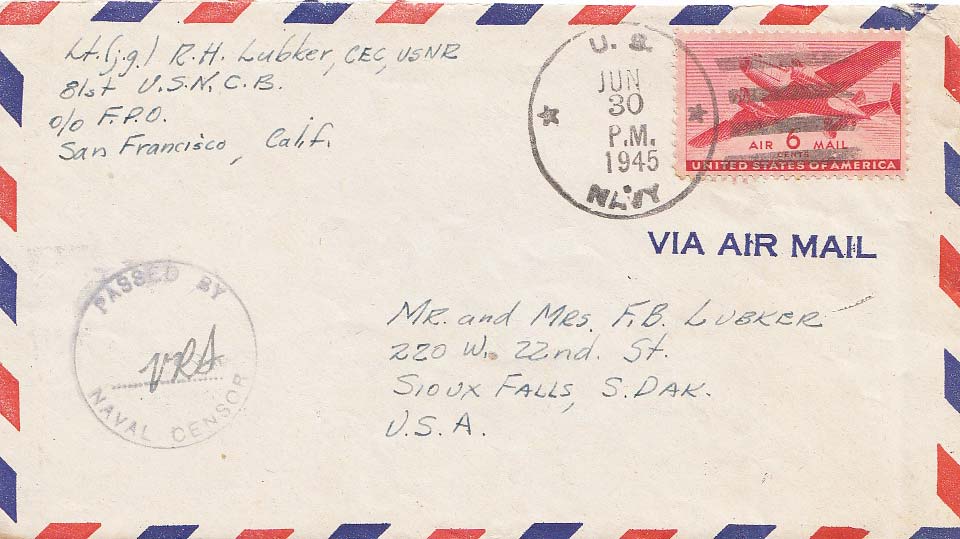 Lt.(j.g.) R.H. Lubker, CEC, USNR
81st U.S.N.C.B.
c/o F.P.O.
San Francisco, Calif.
U.S.
JUN
30
P.M.
1945
NAVY
AIR 6 MAIL
CENTS
UNITED STATES OF AMERICA
VIA AIR MAIL
PASSED BY
VRA
NAVAL CENSOR
MR. and MRS. F.B. LUBKER
220 W. 22nd. St.
SIOUX FALLS, S.DAK.
U.S.A.